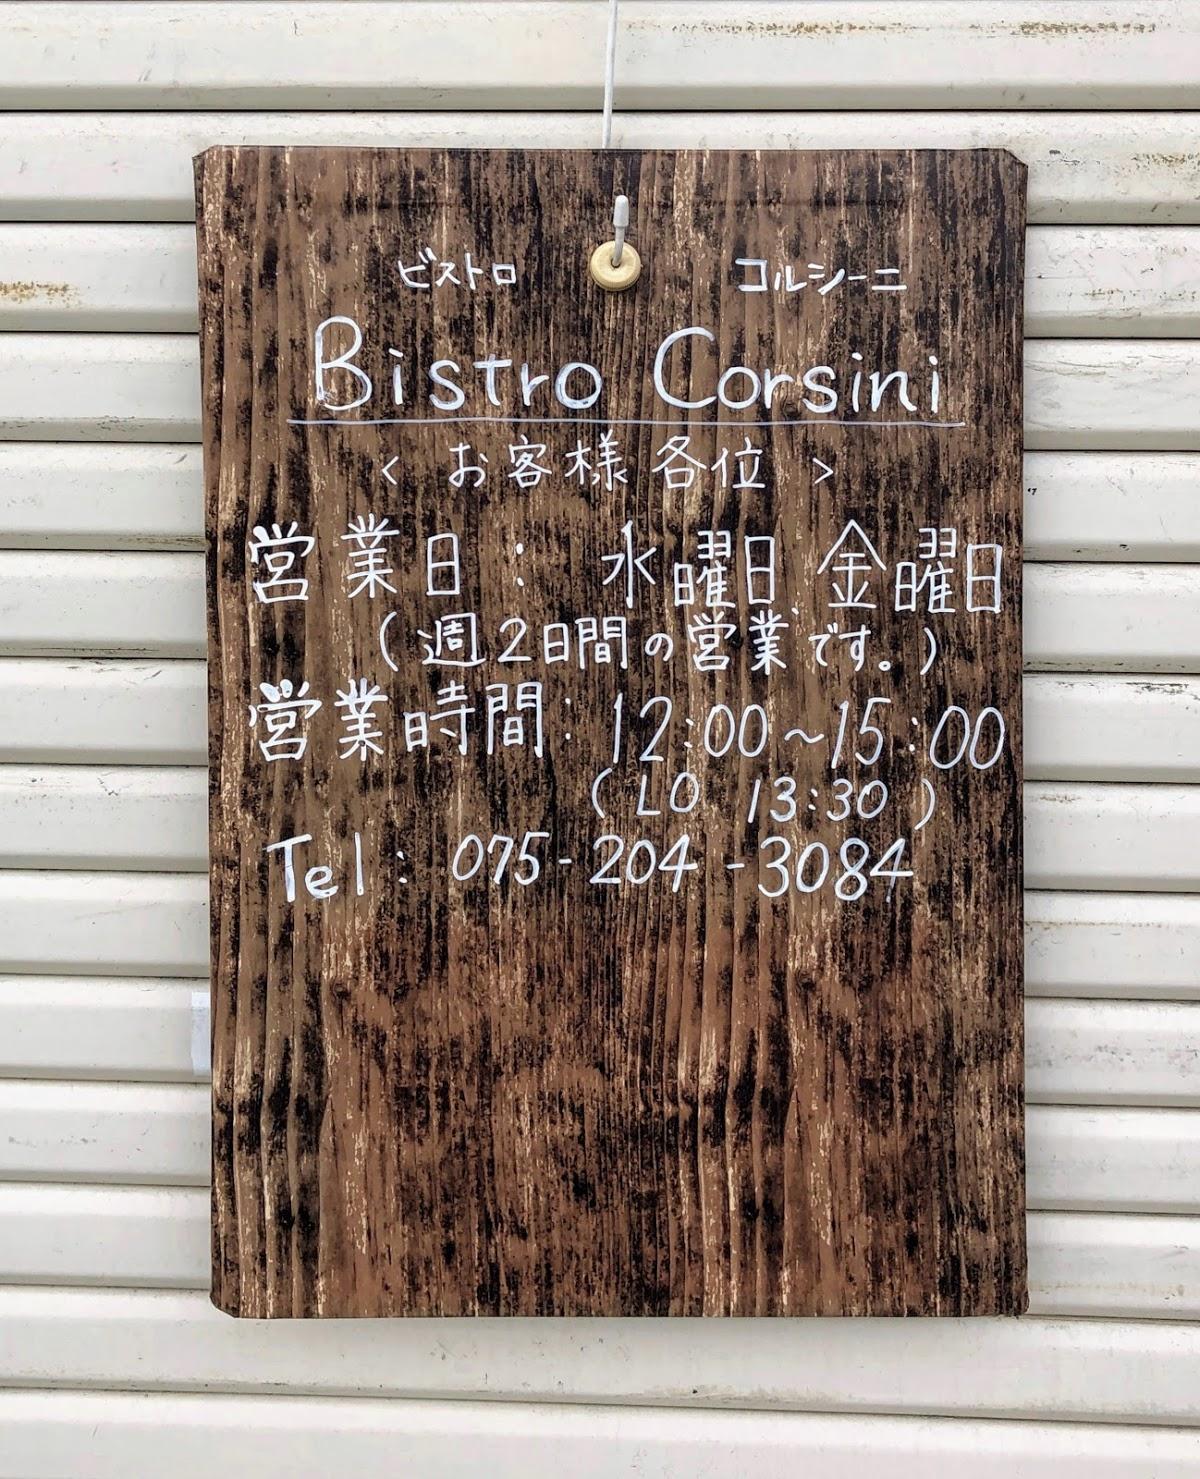 ビストロ コルシーニ
Bistro Corsini
< お客様 各位 >
営業日: 水曜日 金曜日
(週2日間の営業です。)
営業時間: 12:00~15:00
(LO 13:30)
Tel: 075-204-3084